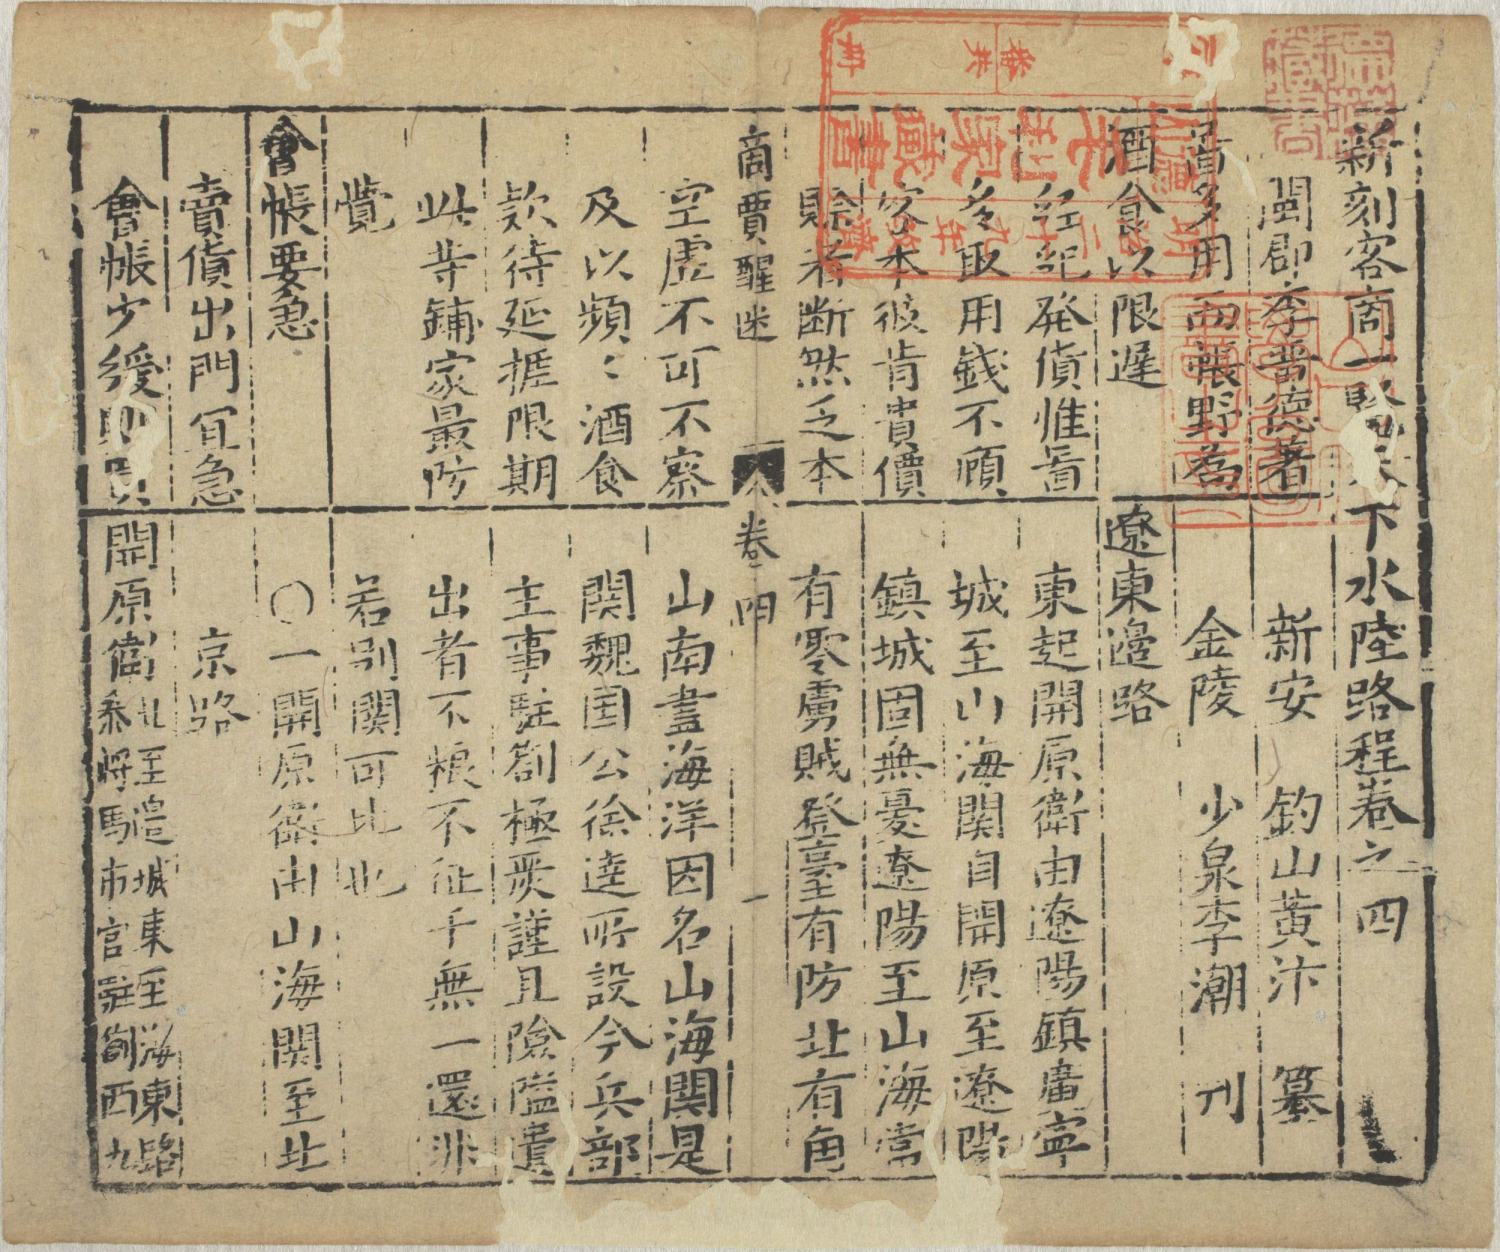 新刻客商一覽下水陸路程卷之四
閩郡李晉德著
新安 釣山黃汴 纂
金陵 少泉李潮 刊
啚多用而帳野為
酒食以限遲
經紀發債惟啚
多取用錢不顧
客本彼肯貴價
賒者斷然乏本
商賈醒迷
空虛不可不察
及以頻〻酒食
欵待延捱限期
此等鋪家最防
覺
會帳要急
賣債出門宜急
會帳少緩則
遼東邊路
東起開原衛由遼陽鎮廣寧
城至山海關自開原至遼陽
鎮城固無憂遼陽至山海常
有零虜賊登臺有防北有角
卷四
一
山南盡海洋因名山海關是
關魏國公徐達所設今兵部
主事駐劄極嚴謹且險隘遺
出者不粮不征千無一還非
若別關可比也
○一開原衛由山海關至北
京路
開原衛北至邊城東至海東路
叅將馬市官駐劄西九